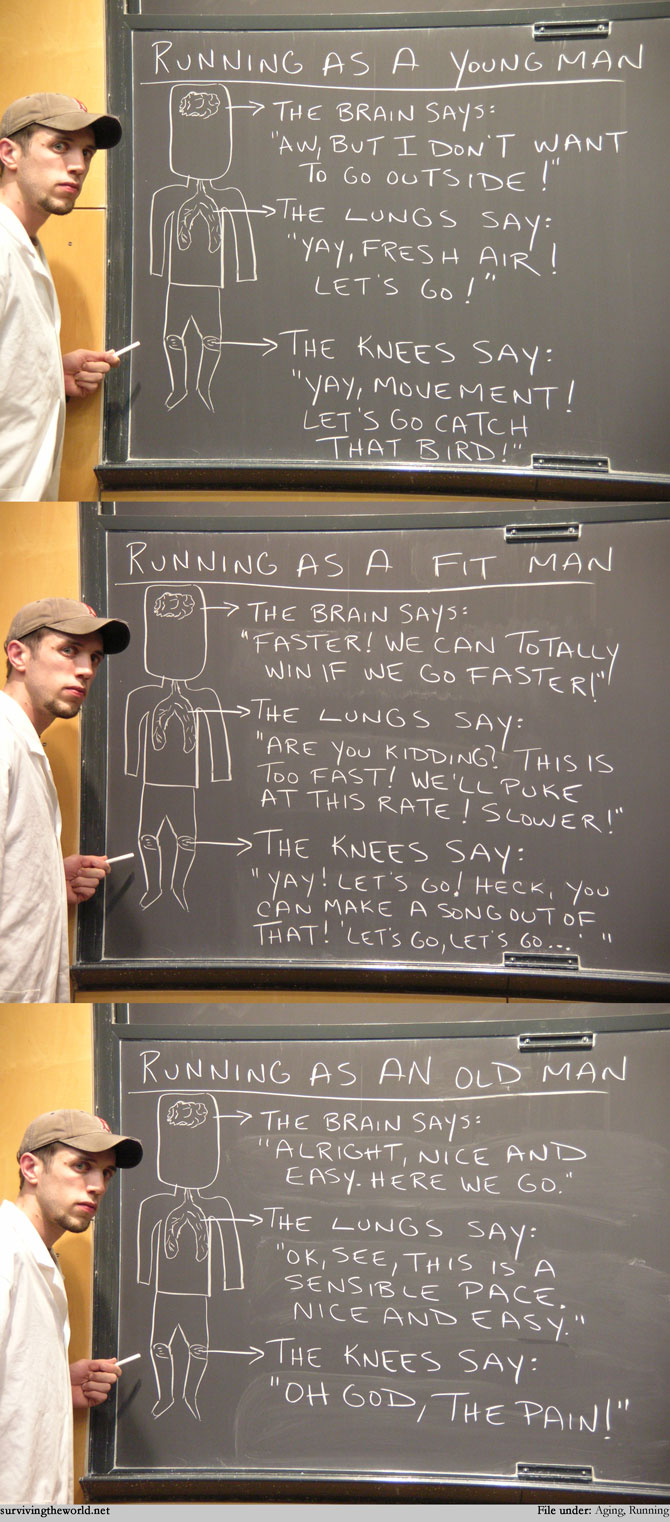 RUNNING AS A YOUNG MAN
THE BRAIN SAYS:
"AW, BUT I DON'T WANT
TO GO OUTSIDE!"
THE LUNGS SAY:
"YAY, FRESH AIR!
LET'S GO!"
THE KNEES SAY:
"YAY, MOVEMENT!
LET'S GO CATCH
THAT BIRD!"
RUNNING AS A FIT MAN
THE BRAIN SAYS:
"FASTER! WE CAN TOTALLY
WIN IF WE GO FASTER!"
THE LUNGS SAY:
"ARE YOU KIDDING? THIS IS
TOO FAST! WE'LL PUKE
AT THIS RATE! SLOWER!"
THE KNEES SAY:
"YAY! LET'S GO! HECK, YOU
CAN MAKE A SONG OUT OF
THAT! 'LET'S GO, LET'S GO...' "
RUNNING AS AN OLD MAN
THE BRAIN SAYS:
"ALRIGHT, NICE AND
EASY. HERE WE GO."
THE LUNGS SAY:
"OK, SEE, THIS IS A
SENSIBLE PACE.
NICE AND EASY."
THE KNEES SAY:
"OH GOD, THE PAIN!"
survivingtheworld.net File under: Aging, Running